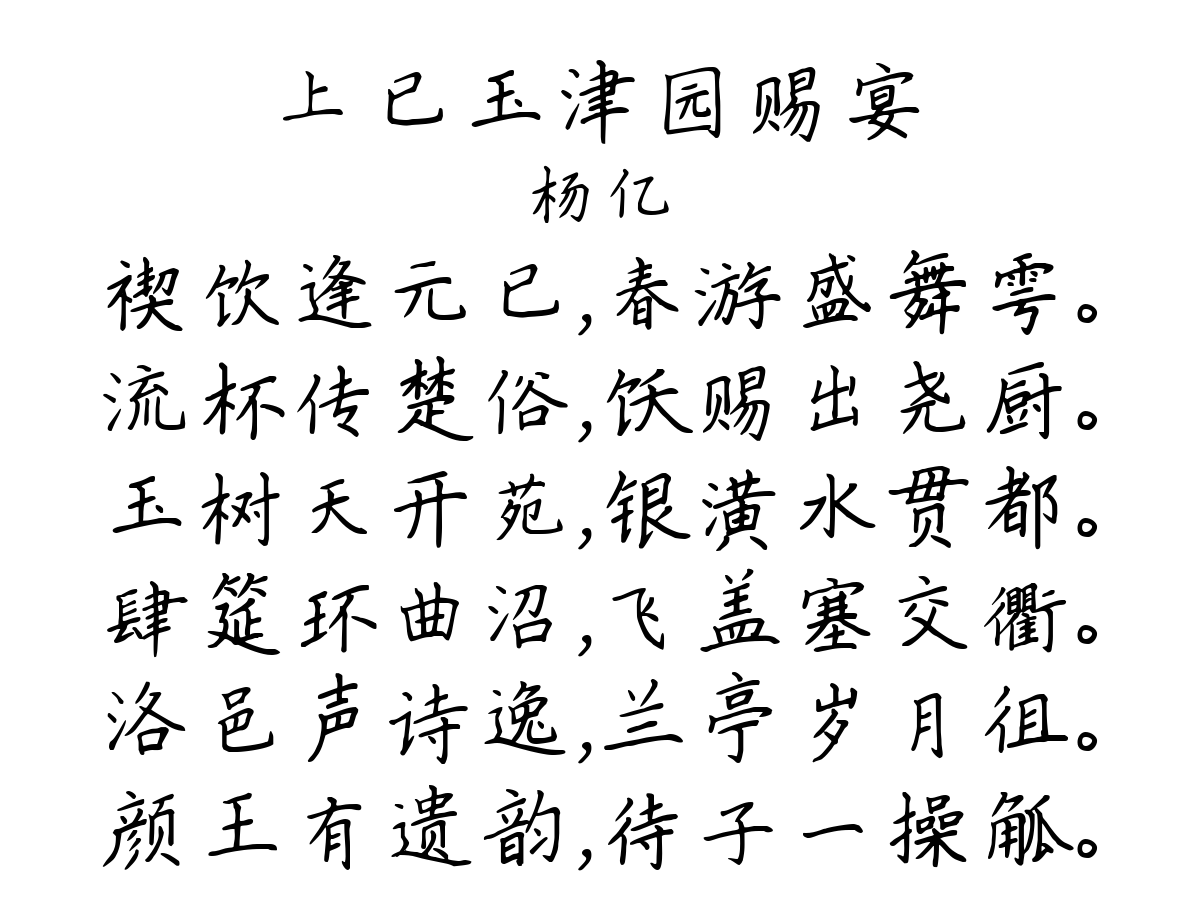 上巳玉津园赐宴
杨亿
禊饮逢元巳,春游盛舞雩。
流杯传楚俗,饫赐出尧厨。
玉树天开苑,银潢水贯都。
肆筵环曲沼,飞盖塞交衢。
洛邑声诗逸,兰亭岁月徂。
颜王有遗韵,待子一操觚。